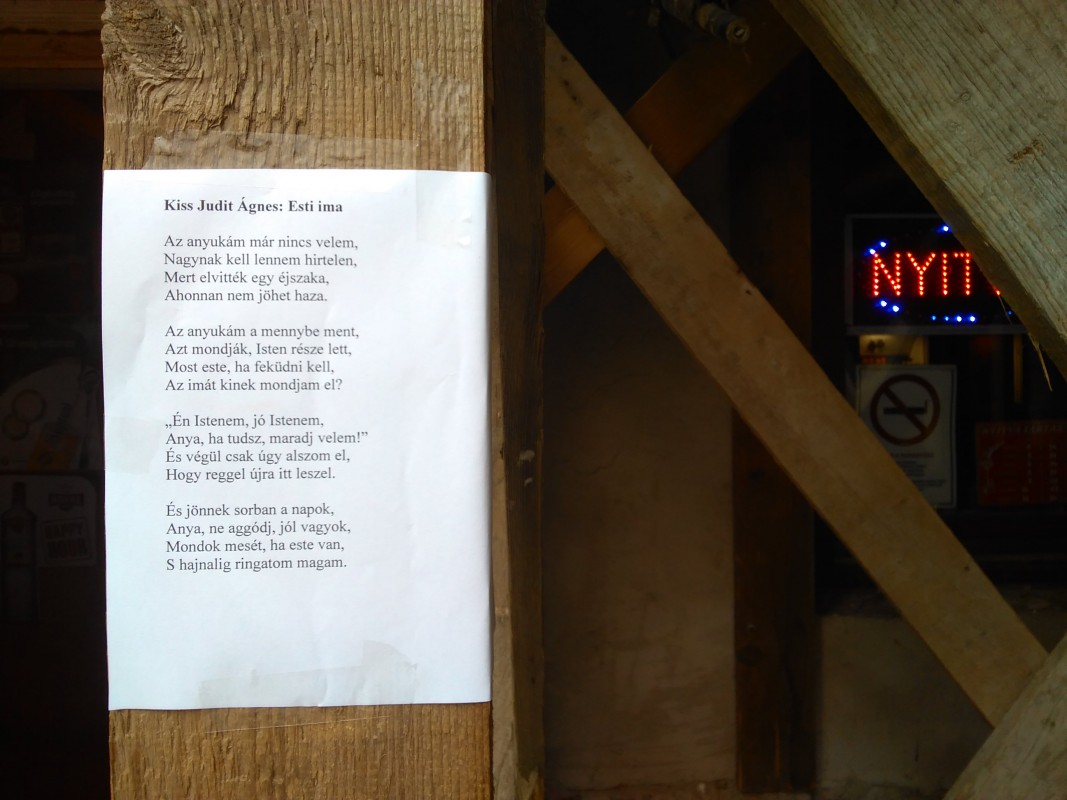 Kiss Judit Ágnes: Esti ima
Az anyukám már nincs velem,
Nagynak kell lennem hirtelen,
Mert elvitték egy éjszaka,
Ahonnan nem jöhet haza.
Az anyukám a mennybe ment,
Azt mondják, Isten része lett,
Most este, ha feküdni kell,
Az imát kinek mondjam el?
„Én Istenem, jó Istenem,
Anya, ha tudsz, maradj velem!”
És végül csak úgy alszom el,
Hogy reggel újra itt leszel.
És jönnek sorban a napok,
Anya, ne aggódj, jól vagyok,
Mondok mesét, ha este van,
S hajnalig ringatom magam.
NYIT